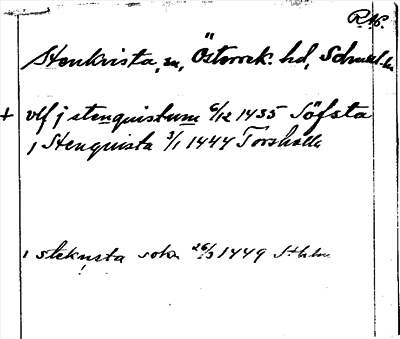 R.16.
Stenkvista, sn, Österrek. hd, Södermanl. län
+ Ulf j stenquistum 6/12 1435 Söfsta
j Stenquista 3/1 1444 Torshälla
i stekusta sokn 26/3 1449 Sthlm